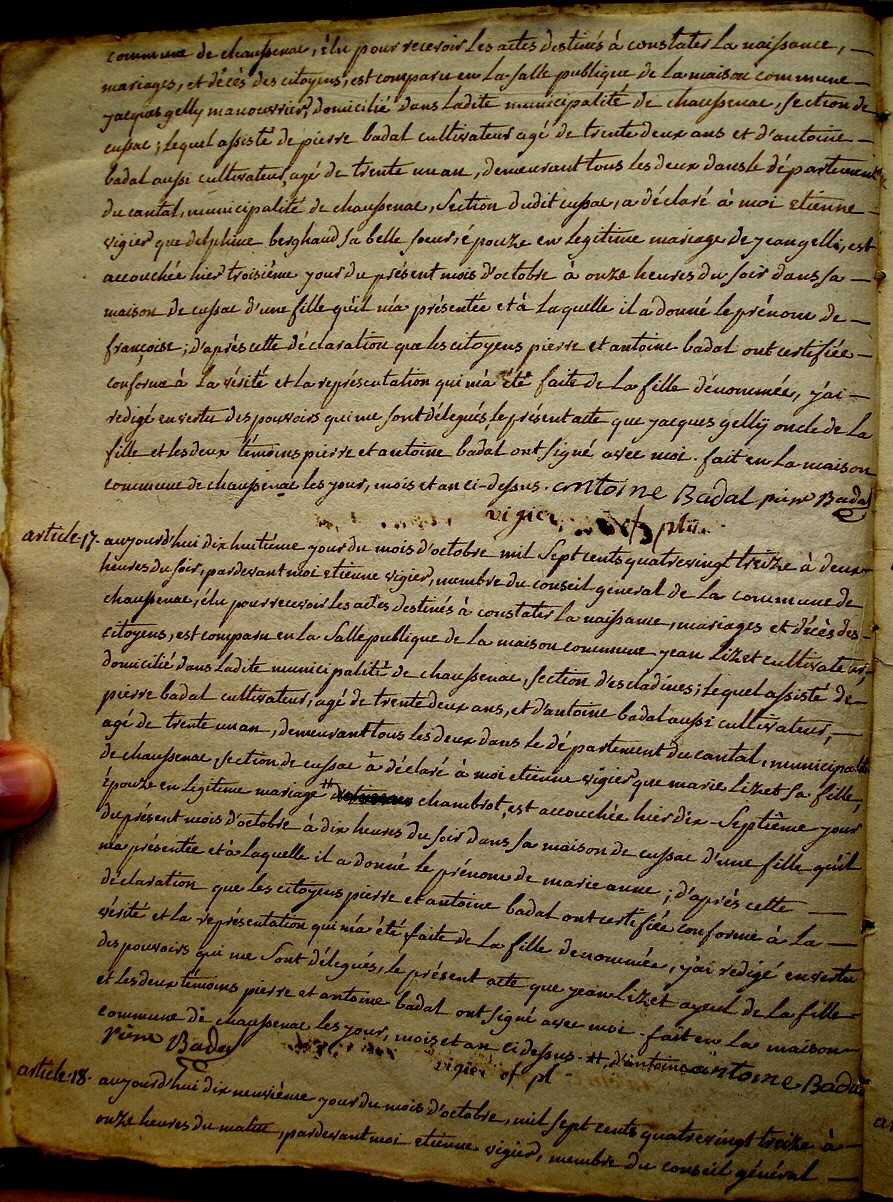 commune de chaussenac, élu pour recevoir les actes destinés à constater la naissance, —
mariages, et décès des citoyens, est comparu en la salle publique de la maison commune —
jacques gelly manouvrier, domicilié dans ladite municipalité de chaussenac, section de
cussac; lequel assisté de pierre badal cultivateur agé de trente deux ans et d'antoine —
badal aussi cultivateur, agé de trente un an, demeurant tous les deux dans le département
du cantal, municipalité de chaussenac, section dudit cussac, a déclaré à moi etienne —
vigier que delphine berghaud sa belle soeur, épouze en legitime mariage de jean gelli, est
accouchée hier troisième jour du présent mois d'octobre à onze heures du soir dans sa —
maison de cussac d'une fille qu'il m'a présentée et à laquelle il a donné le prénom de —
françoise; d'après cette déclaration que les citoyens pierre et antoine badal ont certifiée —
conforme à la vérité et la représentation qui m'a été faite de la fille dénommée, j'ai —
redigé en vertu des pouvoirs qui me sont délegués, le présent acte que jacques gellÿ oncle de la
fille et les deux témoins pierre et antoine badal ont signé avec moi. fait en la maison
commune de chaussenac les jour, mois et an ci-dessus. antoine Badal pierre Badal
vigier of. pl.
article-17- aujourd'hui dix huitième jour du mois d'octobre mil sept cents quatrevingt treize à deux
heures du soir, pardevant moi etienne vigier, membre du conseil general de la commune de
chaussenac, élu pour recevoir les actes destinés à constater la naissance, mariages et décès des —
citoyens, est comparu en la salle publique de la maison commune jean lizet cultivateur
domicilié dans ladite municipalité de chaussenac, section d'escladines; lequel assisté de —
pierre badal cultivateur, agé de trente deux ans, et d'antoine badal aussi cultivateur, —
agé de trente un an, demeurant tous les deux dans le département du cantal, municipalité
de chaussenac, section de cussac à déclaré à moi etienne vigier que marie lizet sa fille,
épouze en legitime mariage # chambrot, est accouchée hier dix-septième jour
du présent mois d'octobre à dix heures du soir dans sa maison de cussac d'une fille qu'il
m'a présentée et à laquelle il a donné le prénom de marie anne; d'après cette —
déclaration que les citoyens pierre et antoine badal ont certifiée conforme à la —
vérité et la représentation qui m'a été faite de la fille denommée, j'ai redigé en vertu
des pouvoirs qui me sont délegués, le présent acte que jean lizet ayeul de la fille
et les deux témoins pierre et antoine badal ont signé avec moi. fait en la maison —
commune de chaussenac les jour, mois et an ci dessus. #, d'antoine antoine Badal
Badal
vigier of. pl
article-18- aujourd'hui dix neuvième jour du mois d'octobre, mil sept cents quatrevingt treize à —
onze heures du matin, pardevant moi etienne vigier, membre du conseil général —